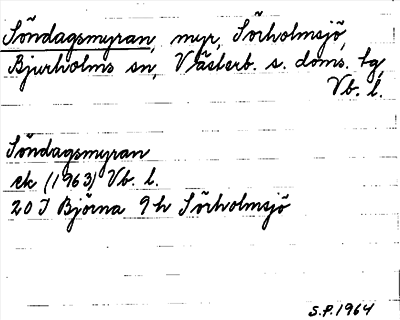 Söndagsmyran, myr, Sörholmsjö,
Bjurholms sn, Västerb. s. doms. tg,
Vb. l.
Söndagsmyran
ek (1963) Vb. l.
20 I Björna 9 h Sörholmsjö
S.P. 1964